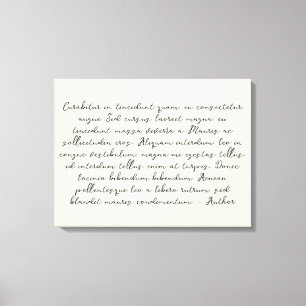 Curabitur in tincidunt quam, eu consectetur
augue. Sed cursus laoreet magna, eu
tincidunt massa viverra a. Mauris ac
sollicitudin eros. Aliquam interdum leo in
congue vestibulum, magna nec egestas tellus,
id interdum tellus enim at turpis. Donec
lacinia bibendum bibendum. Aenean
pellentesque leo a libero rutrum, sed
blandit mauris condimentum. - Author